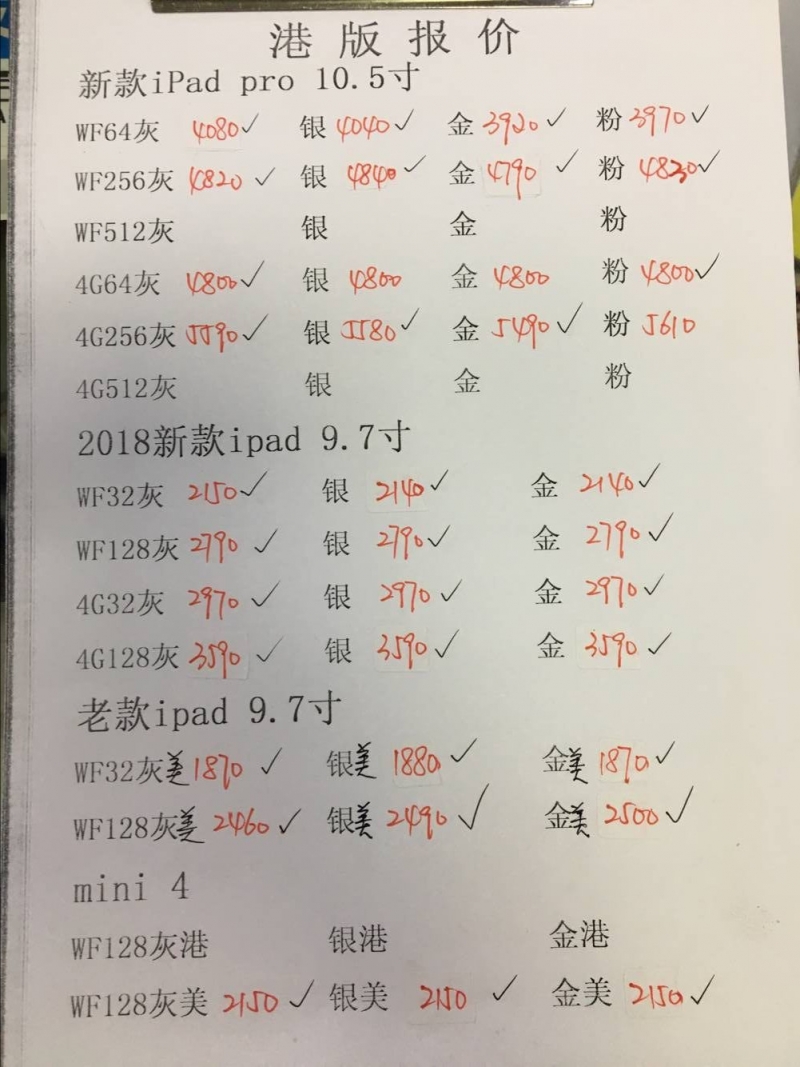 港版报价
新款iPad pro 10.5寸
WF64灰 4080✓ 银 4040✓ 金 3920✓ 粉 3970✓
WF256灰 4820✓ 银 4840✓ 金 4790✓ 粉 4830✓
WF512灰 银 金 粉
4G64灰 4800✓ 银 4800 金 4800 粉 4800✓
4G256灰 5590✓ 银 5580✓ 金 5490✓ 粉 5610
4G512灰 银 金 粉
2018新款ipad 9.7寸
WF32灰 2150✓ 银 2140✓ 金 2140✓
WF128灰 2790✓ 银 2790✓ 金 2790✓
4G32灰 2970✓ 银 2970✓ 金 2970✓
4G128灰 3590✓ 银 3590✓ 金 3590✓
老款ipad 9.7寸
WF32灰美 1870✓ 银美 1880✓ 金美 1870✓
WF128灰美 2460✓ 银美 2490✓ 金美 2500✓
mini 4
WF128灰港 银港 金港
WF128灰美 2150✓ 银美 2150✓ 金美 2150✓